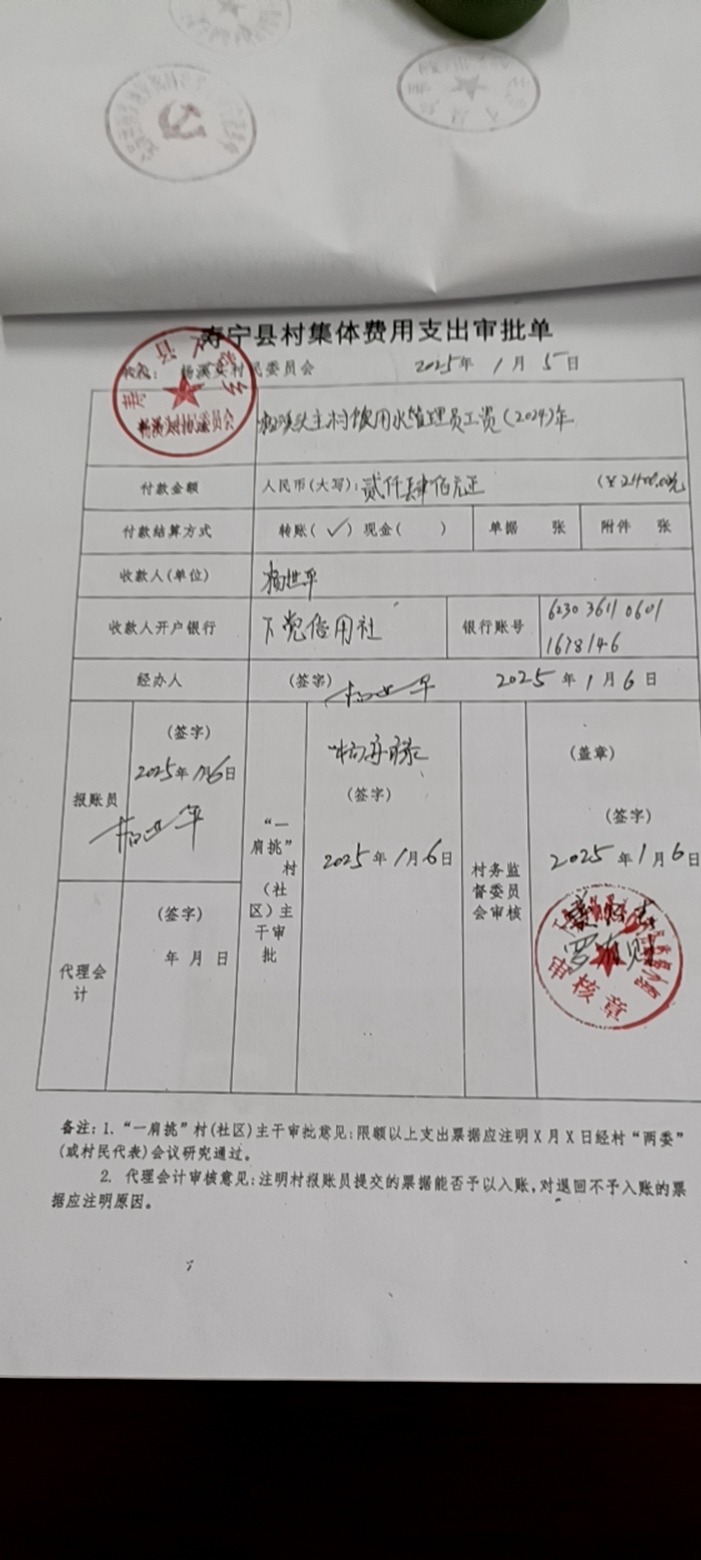 寿宁县村集体费用支出审批单
杨溪头村民委员会 2025年1月5日
杨溪头主村饮用水管理员工资(2024)年
付款金额 人民币(大写):贰仟肆佰元正 (¥2400.00元
付款结算方式 转账(✓)现金( ) 单据 张 附件 张
收款人(单位) 杨世平
收款人开户银行 下党信用社 银行账号 6230 3611 0601
1678146
经办人 (签字) 杨世平 2025年1月6日
报账员 (签字)
2025年1月6日
杨世平
代理会计 (签字)
年 月 日
“一肩挑”村(社区)主干审批
(签字)
2025年1月6日
村务监督委员会审核 (盖章)
(签字)
2025年1月6日
审核章
备注:1.“一肩挑”村(社区)主干审批意见:限额以上支出票据应注明X月X日经村“两委”
(或村民代表)会议研究通过。
2. 代理会计审核意见:注明村报账员提交的票据能否予以入账,对退回不予入账的票
据应注明原因。